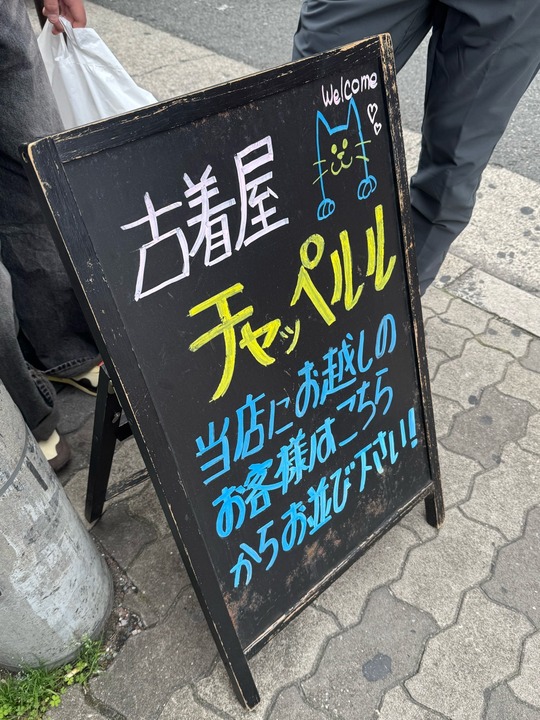 Welcome
古着屋
チャッペルル
当店にお越しの
お客様はこちら
からお並び下さい!!